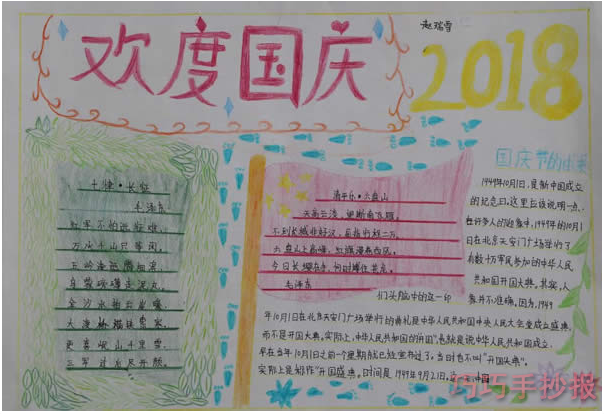 欢度国庆
赵瑞雪
2018
七律·长征
毛泽东
红军不怕远征难，
万水千山只等闲。
五岭逶迤腾细浪，
乌蒙磅礴走泥丸。
金沙水拍云崖暖，
大渡桥横铁索寒。
更喜岷山千里雪，
三军过后尽开颜。
清平乐·六盘山
天高云淡，望断南飞雁。
不到长城非好汉，屈指行程二万。
六盘山上高峰，红旗漫卷西风。
今日长缨在手，何时缚住苍龙。
毛泽东
国庆节的小
1949年10月1日，是新中国成立
的纪念日。这里应该说明一点，
在许多人的印象中，1949年的10月1
日在北京天安门广场举行了
有数十万军民参加的中华人民
共和国开国大典。其实，人
们头脑中的这一印
象并不准确。因为，1949
年10月1日在北京天安门广场举行的典礼是中华人民共和国中央人民政府成立盛典，
而不是开国大典。实际上，中华人民共和国的"开国"，也就是说中华人民共和国成立，
早在当年10月1日之前一个星期就已经宣布过了。当时也不叫"开国大典"，
实际上是称作"开国盛典"。时间是1949年9月21日。
中国
巧巧手抄报